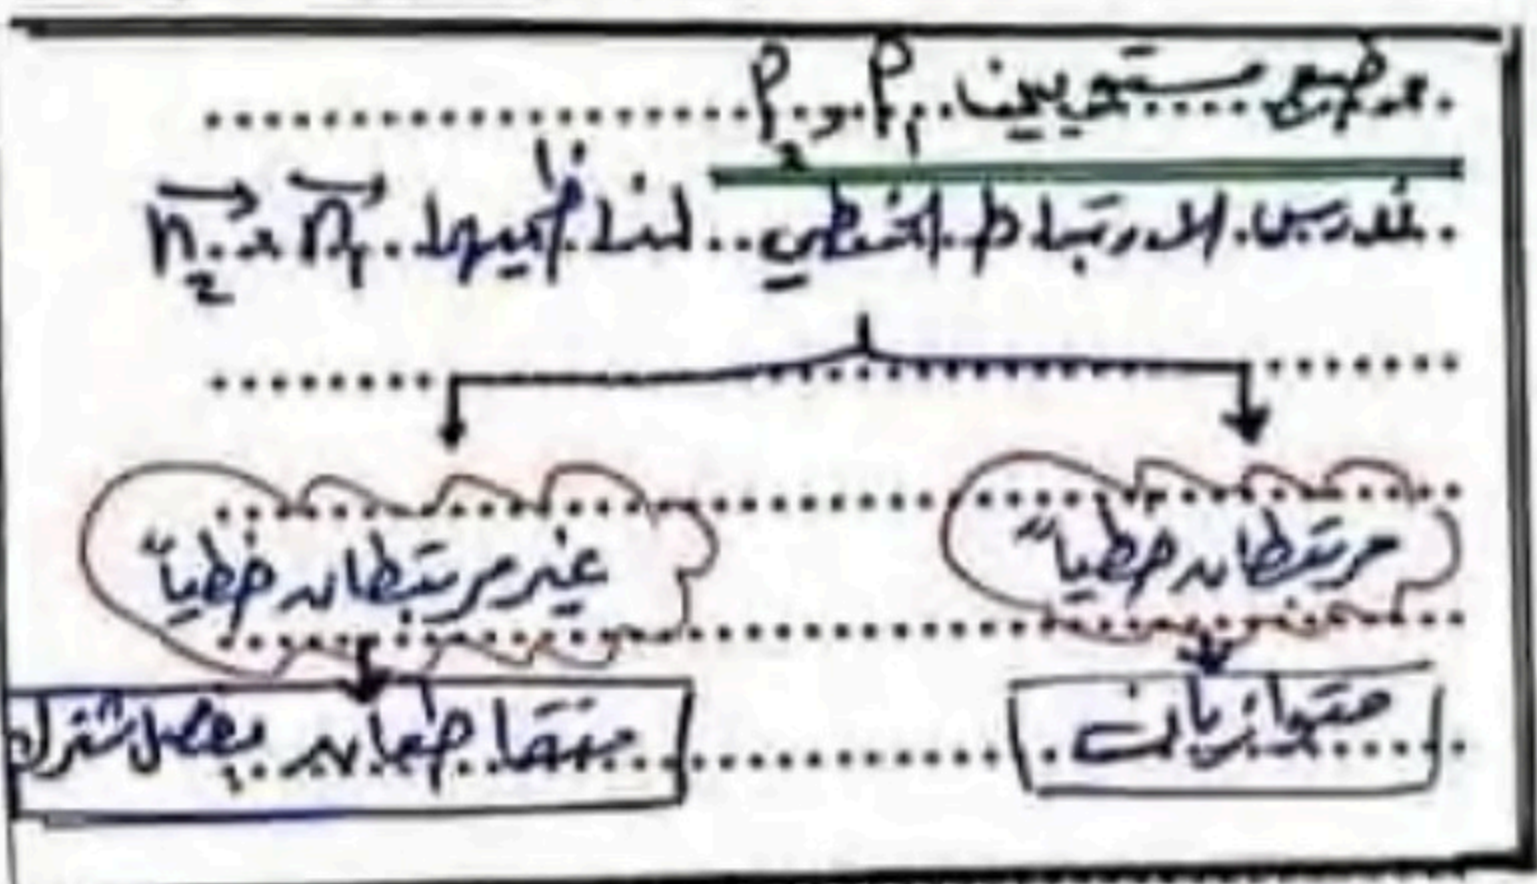 وضع مستويين P₁ و P₂
ندرس الارتباط الخطي لناظميهما n₁ و n₂
مرتبطان خطياً
غير مرتبطان خطياً
متوازيان
متقاطعان بفصل مشترك